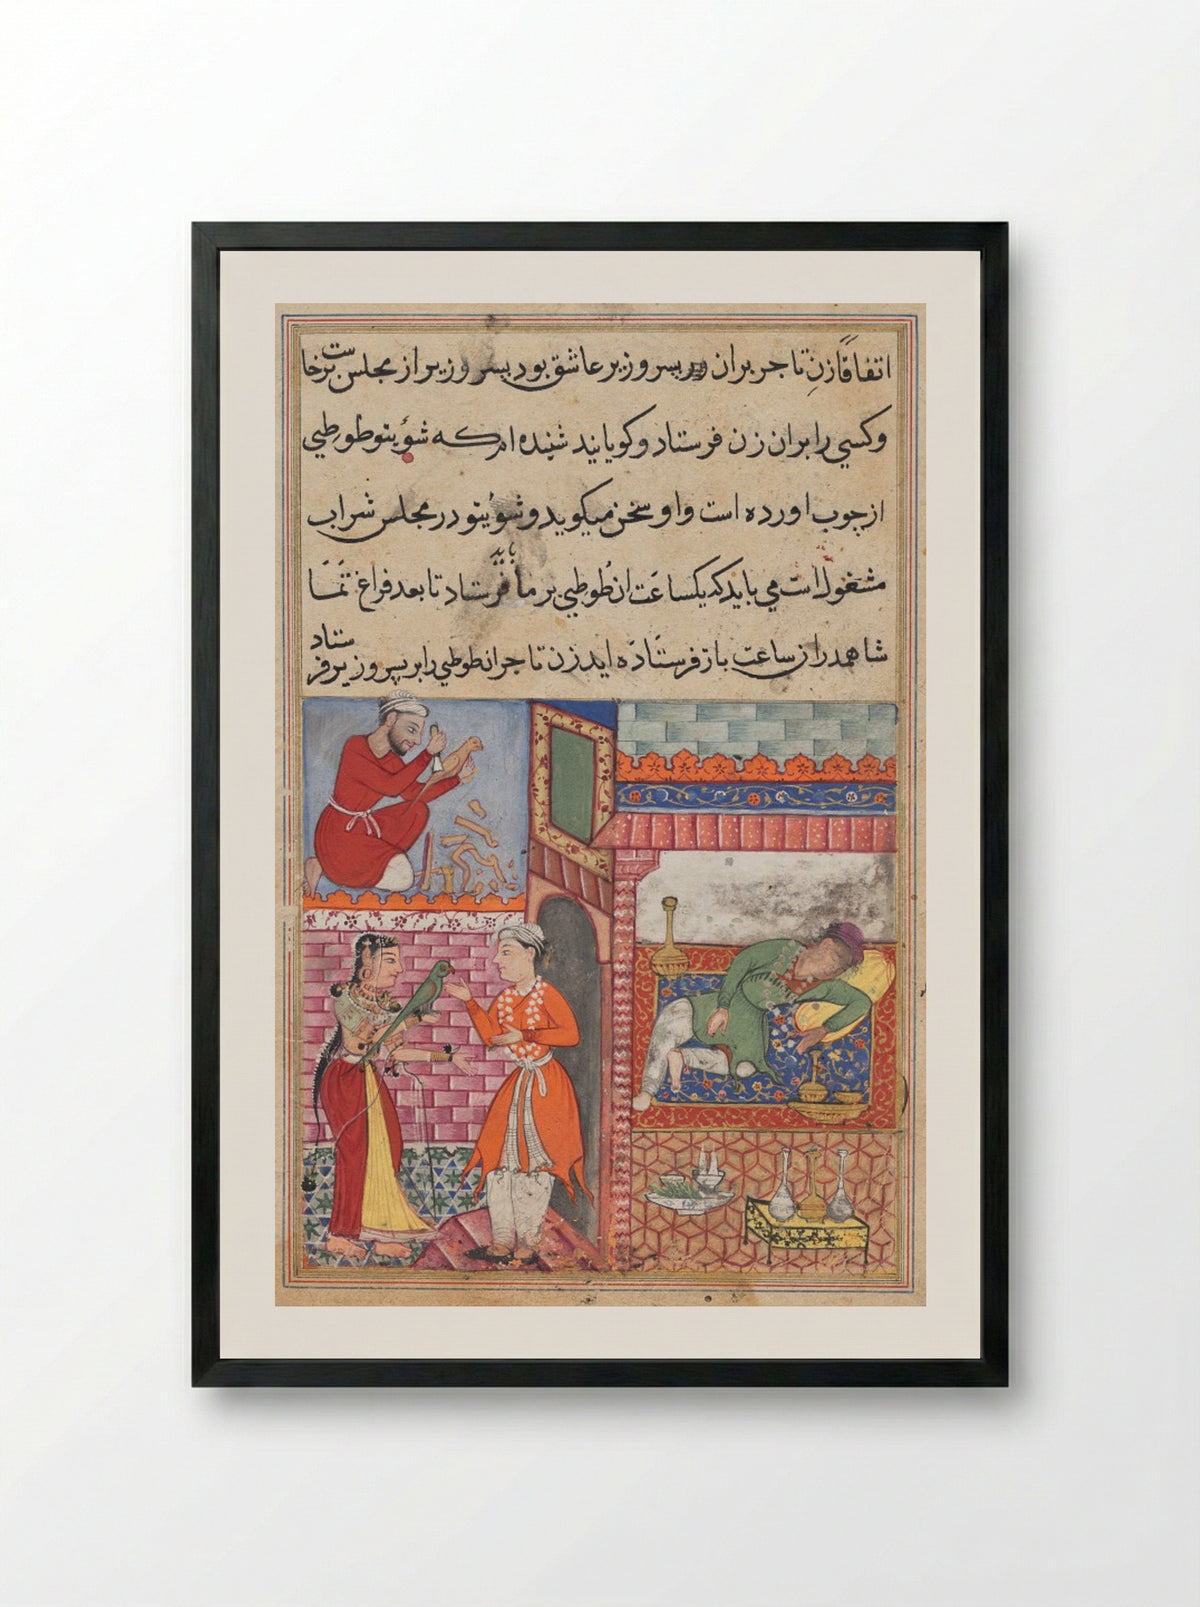 اتفاقًا زنِ تاجر بران پسر وزیر عاشق بود پسر وزیر از مجلس برخاست
و کسي را بران زن فرستاد و کویانید شنیده ام که شوُیتو طوطیي
از چوب اورده است و او سخن میکوید و شوُیتو در مجلس شراب
مشغول است مي باید که یکساعَت ان طُوطیي بر ما باید فرستاد تا بعد فراغ تَمَاشا
شاهمدران ساعت باز فرستَادَه اید زن تاجر ان طوطیي را بر پسر وزیر فرستاد